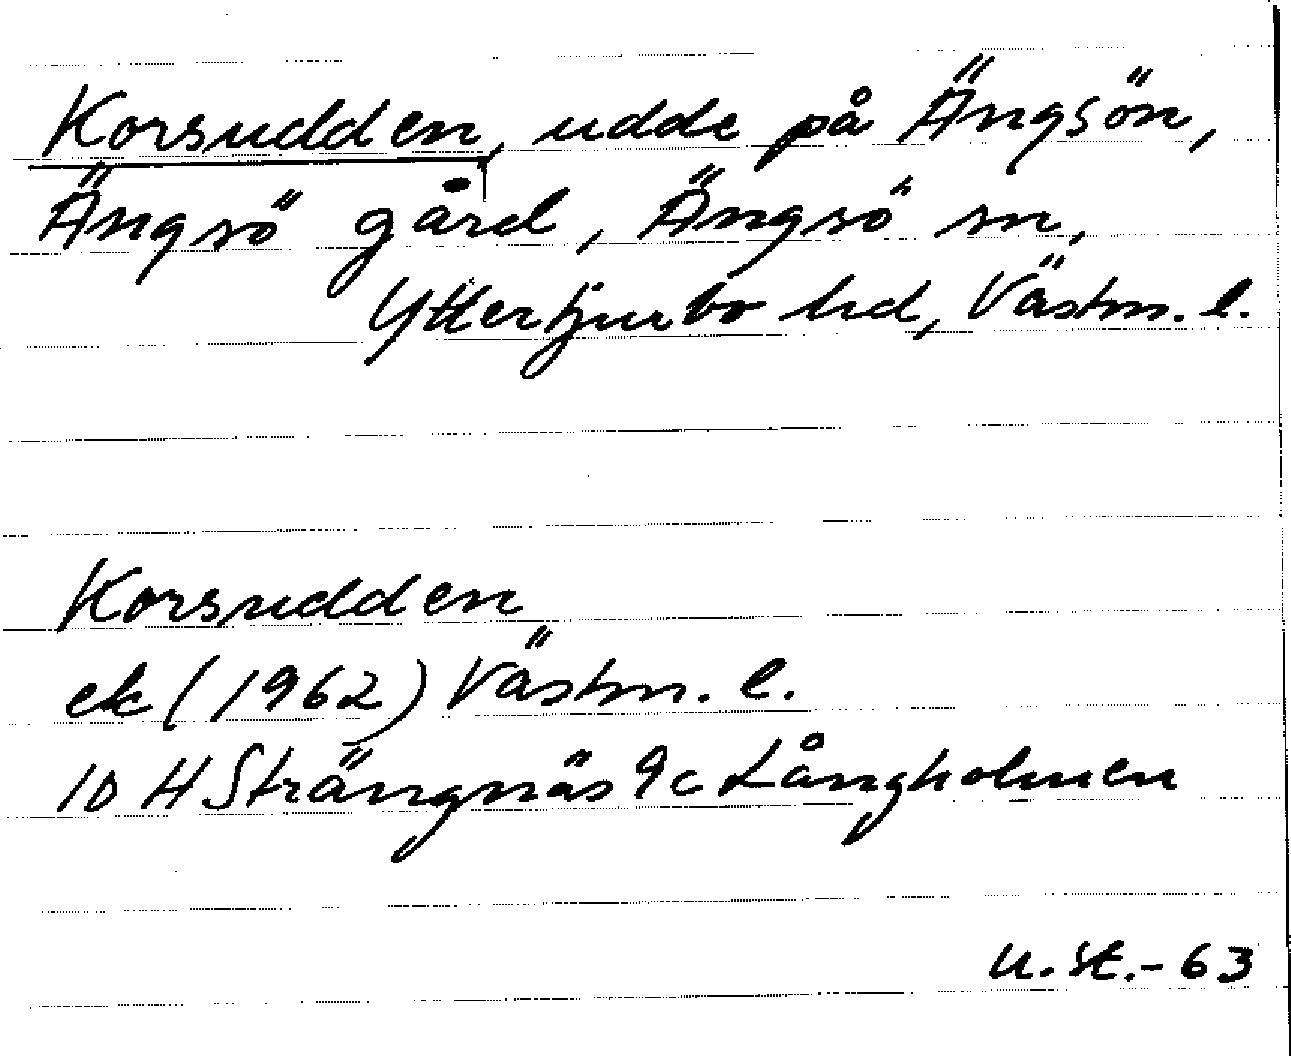 Korsudden, udde på Ängsön,
Ängsö gård, Ängsö sn,
Yttertjurbo hd, Västm. l.
Korsudden
ek (1962) Västm. l.
10 H Strängnäs 9c Långholmen
U. St. - 63